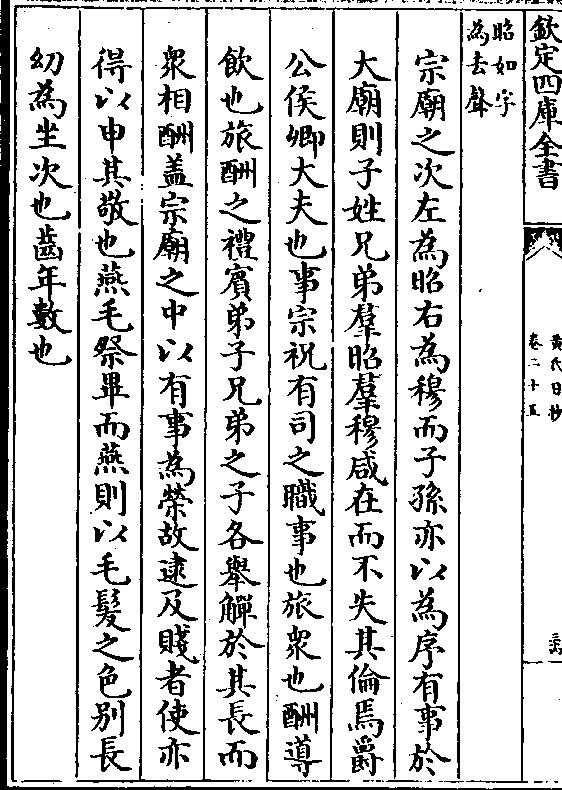 欽定四庫全書
黄氏日抄
卷二十五
昭如字
為去聲
宗廟之次左為昭右為穆而子孫亦以為序有事於
大廟則子姓兄弟羣昭羣穆咸在而不失其倫焉爵
公侯卿大夫也事宗祝有司之職事也旅衆也酬導
飲也旅酬之禮賓弟子兄弟之子各舉觶於其長而
衆相酬盖宗廟之中以有事為榮故逮及賤者使亦
得以申其敬也燕毛祭畢而燕則以毛髮之色别長
幼為坐次也齒年數也